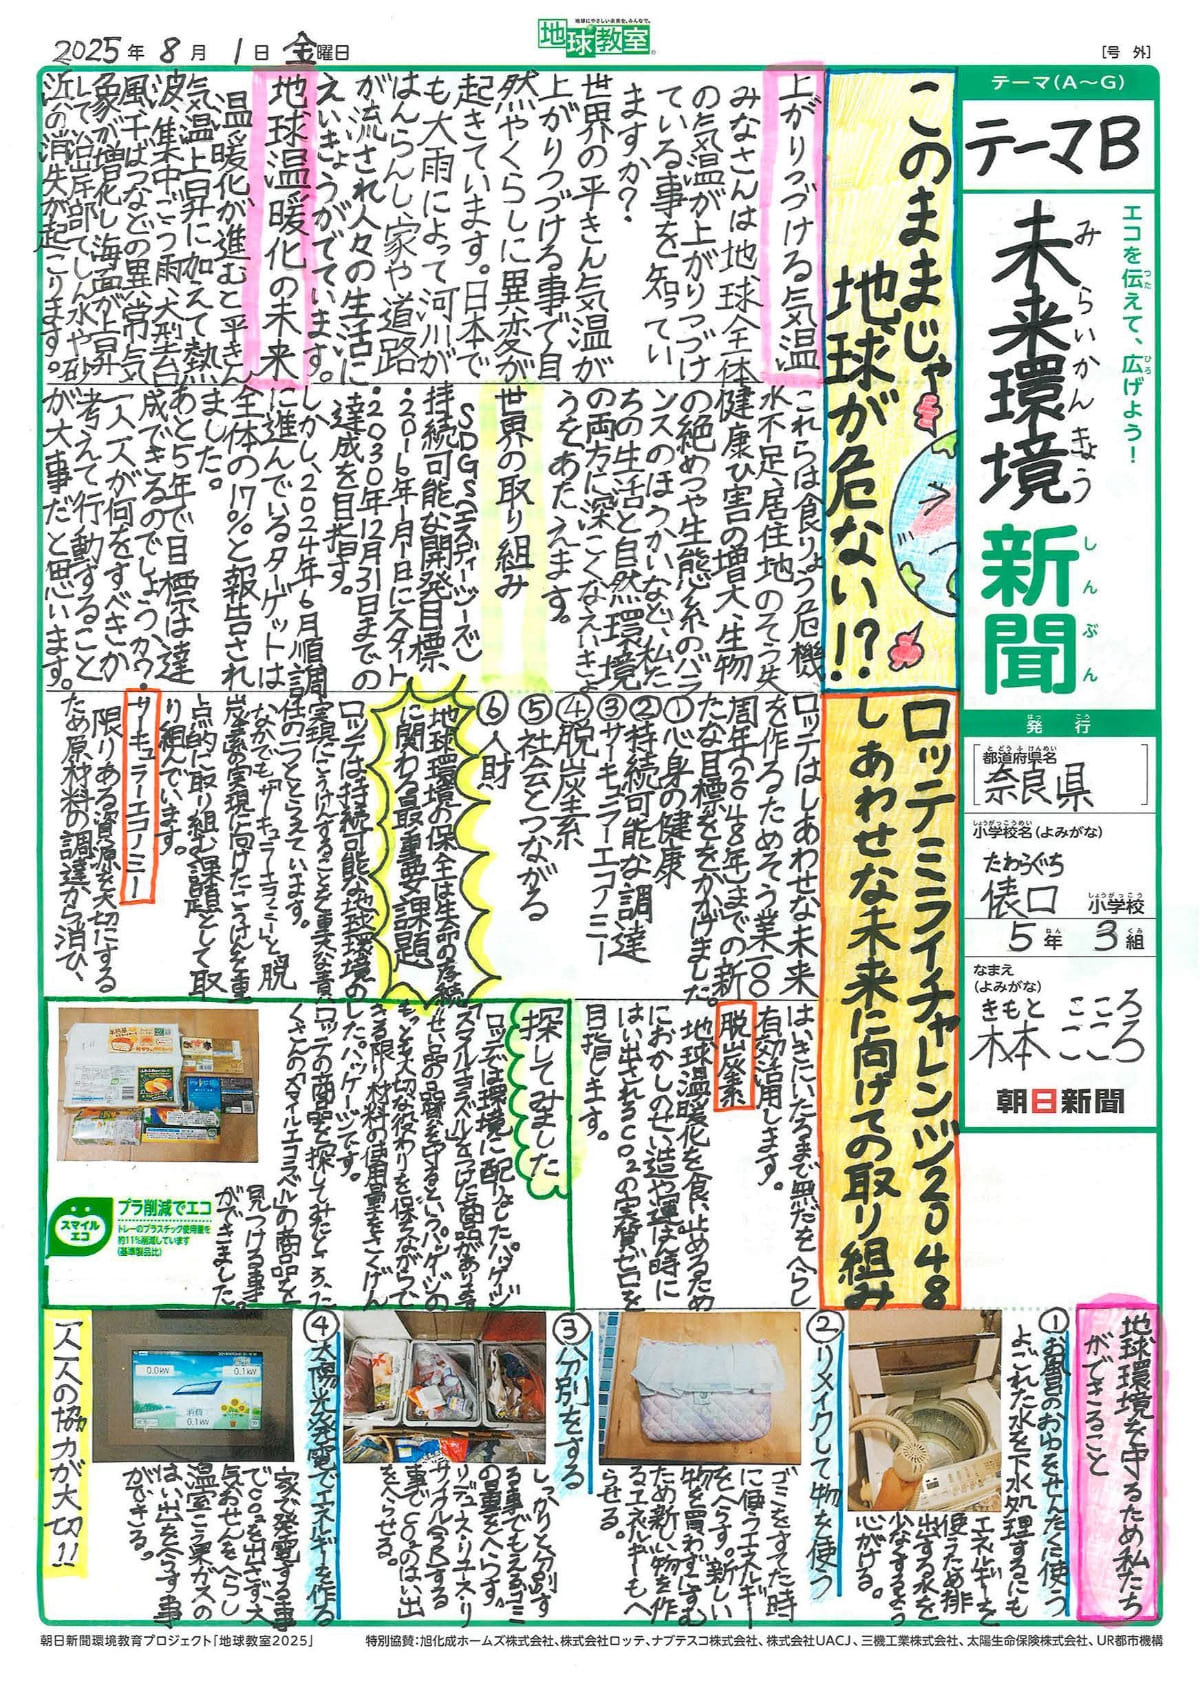 2025年 8月 1日 金曜日
地球にやさしい未来を、みんなで。
地球教室
[号 外]
テーマ(A〜G)
テーマB
エコを伝えて、広げよう!
つた
ひろ
未来環境
みらいかんきょう
新聞
しんぶん
発行
はっこう
都道府県名
とどうふけんめい
奈良県
しょうがっこうめい
小学校名(よみがな)
たわらぐち
俵口
しょうがっこう
小学校
5年 3組
ねん くみ
なまえ
(よみがな)
きもと こころ
木本 こころ
朝日新聞
このままじゃ
地球が危ない!?
上がりつづける気温
みなさんは地球全体
の気温が上がりつづけ
ている事を知ってい
ますか?
世界の平きん気温が
上がりつづける事で自
然やくらしに異変が
起きています。日本で
も大雨によって河川が
はんらんし家や道路
が流され人々の生活に
えいきょうがでています。
地球温暖化の未来
温暖化が進むと平きん
気温上昇に加えて熱
波、集中ごう雨、大型台
風、干ばつなどの異常気
象が増化し海面が上昇
して沿岸部でしん水や砂
浜の消失が起こります。
これらは食りょう危機、
水不足、居住地のそう失
健康ひ害の増大、生物
の絶めつや生態系のバラ
ンスのほうかいなど、私た
ちの生活と自然環境
の両方に深こくなえいきょ
うをあたえます。
世界の取り組み
SDGS(エスディージーズ)
持続可能な開発目標
・2016年1月1日にスタート
・2030年12月31日までの
達成を目指す。
しかし、2024年6月順調
に進んでいるターゲットは
全体の17%と報告され
ました。
あと5年で目標は達
成できるのでしょうか?
一人一人が何をすべきか
考えて行動すること
が大事だと思います。
ロッテミライチャレンジ2048
しあわせな未来に向けての取り組み
ロッテはしあわせな未来
を作るためそう業100
周年(2048年)までの新
たな目標をかかげました。
①心身の健康
②持続可能な調達
③サーキュラーエコノミー
④脱炭素
⑤社会とつながる
⑥人財
地球環境の保全は生命の存続
に関わる最重要課題
ロッテは持続可能な地球環境の
実現にこうけんすることを重大な責
任の一つととらえています。
なかでも「サーキュラーエコノミー」と「脱
炭素」の実現に向けたこうけんを重
点的に取り組む課題として取
り組んでいます。
サーキュラーエコノミー
限りある資源を大切にする
ため原材料の調達から消ひ、
はいきにいたるまで無だをへらし
有効活用します。
脱炭素
地球温暖化を食い止めるため
におかしのせい造や運ぱん時に
はい出されるCO2の実質ゼロを
目指します。
探してみました
ロッテは環境に配りょしたパッケージに
「スマイルエコラベル」をつけた商品があります。
せい品の品質を守るというパッケージの
もっとも大切な役わりを保ちながらで
きる限り材料の使用量をさくげん
したパッケージです。
ロッテの商品を探してみたところ、た
くさんの「スマイルエコラベル」の商品を
見つける事
ができました。
スマイル
エコ
プラ削減でエコ
トレーのプラスチック使用量を
約11%削減しています
(基準製品比)
地球環境を守るため私たち
ができること
①お風呂のおゆをせんたくに使う
よごれた水を下水処理するにも
エネルギーを
使うため排
出する水を
少なくするよう
心がける。
②リメイクして物を使う
ゴミをすてた時
に使うエネルギー
をへらす。新しい
物を買わずにすむ
ため新しい物を作
るエネルギーもへ
らせる。
③分別をする
しっかりと分別す
る事でもえるゴミ
の量をへらす。
リデュース・リユース・リ
サイクル今きする
事でCO2のはい出
をへらせる。
④太陽光発電でエネルギーを作る
家で発電する事
でCO2を出さず、大
気おせんをへらし
温室こう果ガスの
はい出をへらす事
ができる。
0.0kW
0.1kW
消費
0.1kW
一人一人の協力が大切!!
朝日新聞環境教育プロジェクト「地球教室2025」
特別協賛:旭化成ホームズ株式会社、株式会社ロッテ、ナブテスコ株式会社、株式会社UACJ、三機工業株式会社、太陽生命保険株式会社、UR都市機構